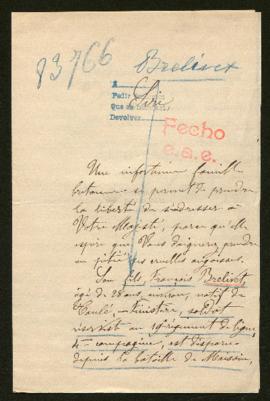 83766
Brelivet
A
Pedir
Que se
Devolver
Sire,
Fecho
e.a.e.
Une infortunée famille
bretonne se permet de prendre
la liberté de s'adresser à
Votre Majesté, parce qu'elle
espère que Vous daignerez prendre
en pitié ses cruelles angoisses.
Son fils, François Brelivet,
âgé de 28 ans, natif de
Finistère, soldat
réserviste au régiment de ligne,
4e compagnie, est disparu
depuis la bataille de